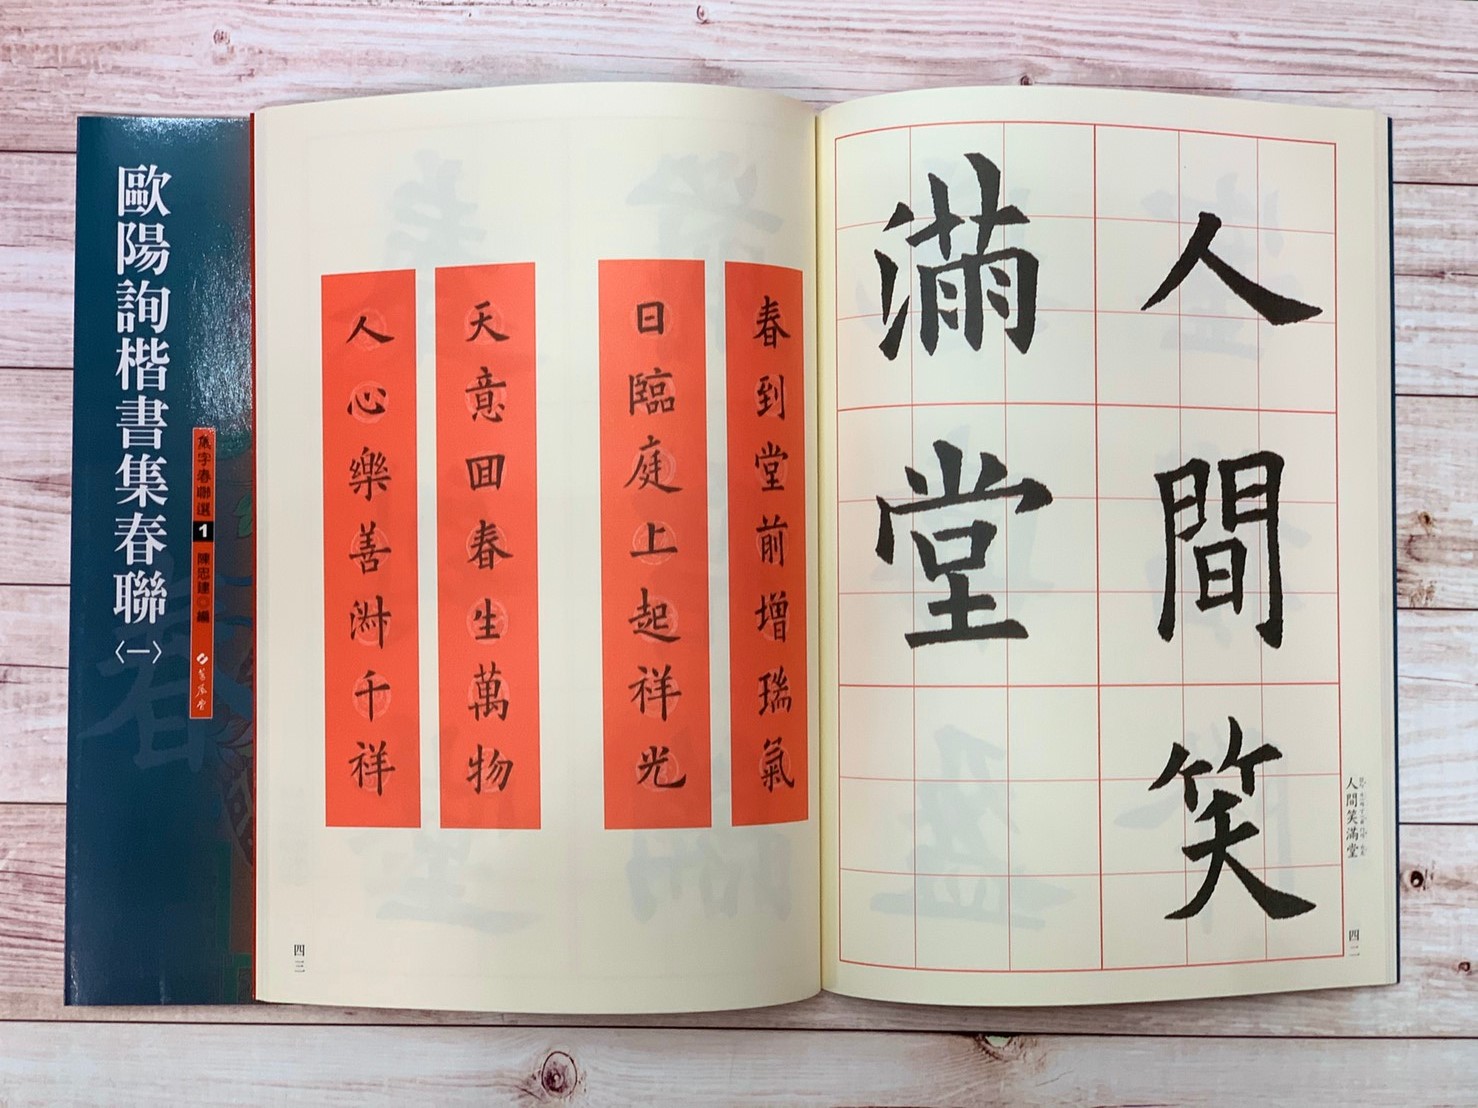 歐陽詢楷書集春聯〈一〉
集字春聯選 1 陳忠建◎編
蕙風堂
人間笑
滿堂
人間笑滿堂
四二
春到堂前增瑞氣
日臨庭上起祥光
天意囬春生萬物
人心樂善 千祥
四三